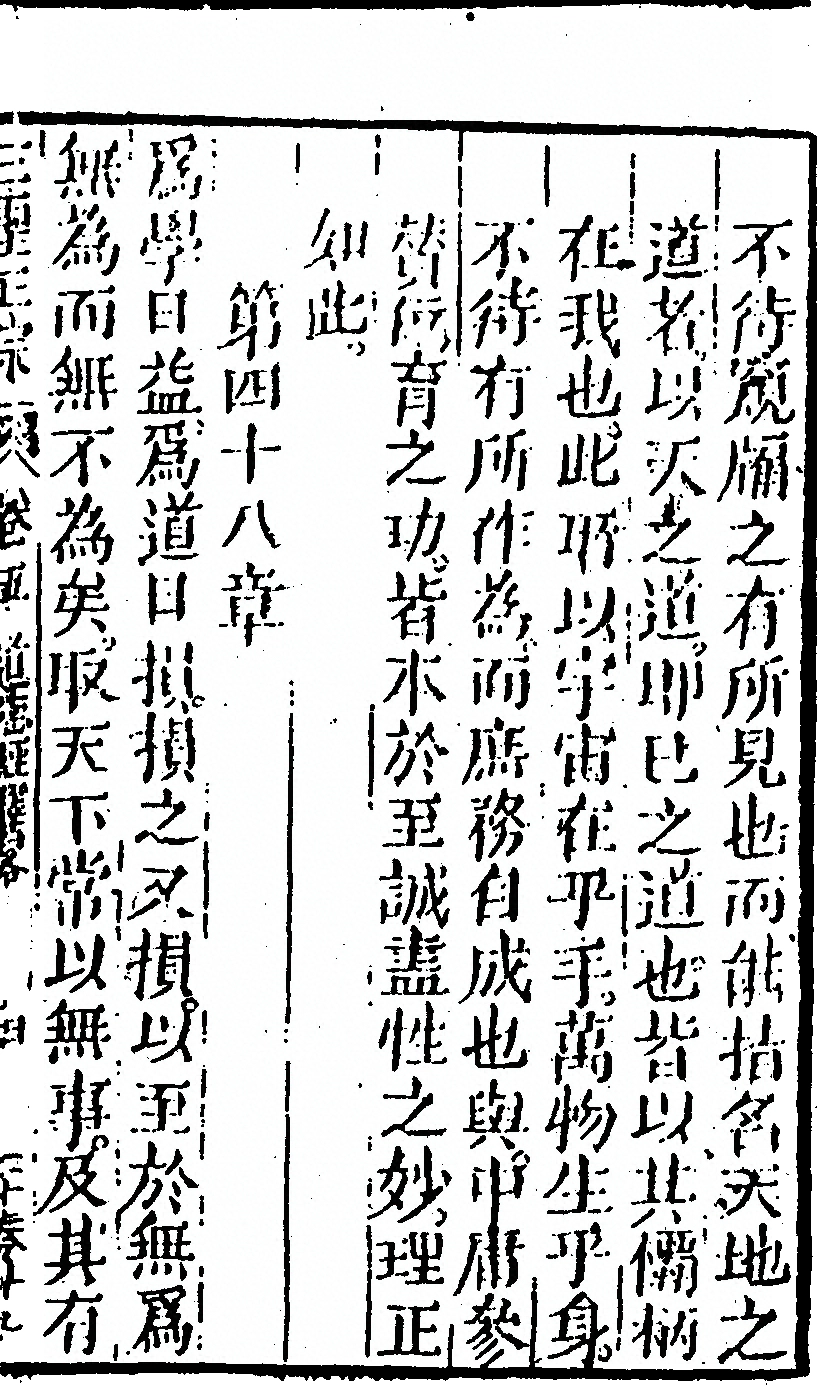 不待窺牖之有所見也而能指名天地之
道者以天之道即已之道也皆以其備柄
在我也此所以宇宙在乎手萬物生乎身
不待有所作為而庶務自成也與中庸參
贊所育之功皆本於至誠盡性之妙理正
如此
第四十八章
爲學日益爲道日損損之又損以至於無爲
無為而無不為矣取天下常以無事及其有
三聖正宗 卷五 道德經